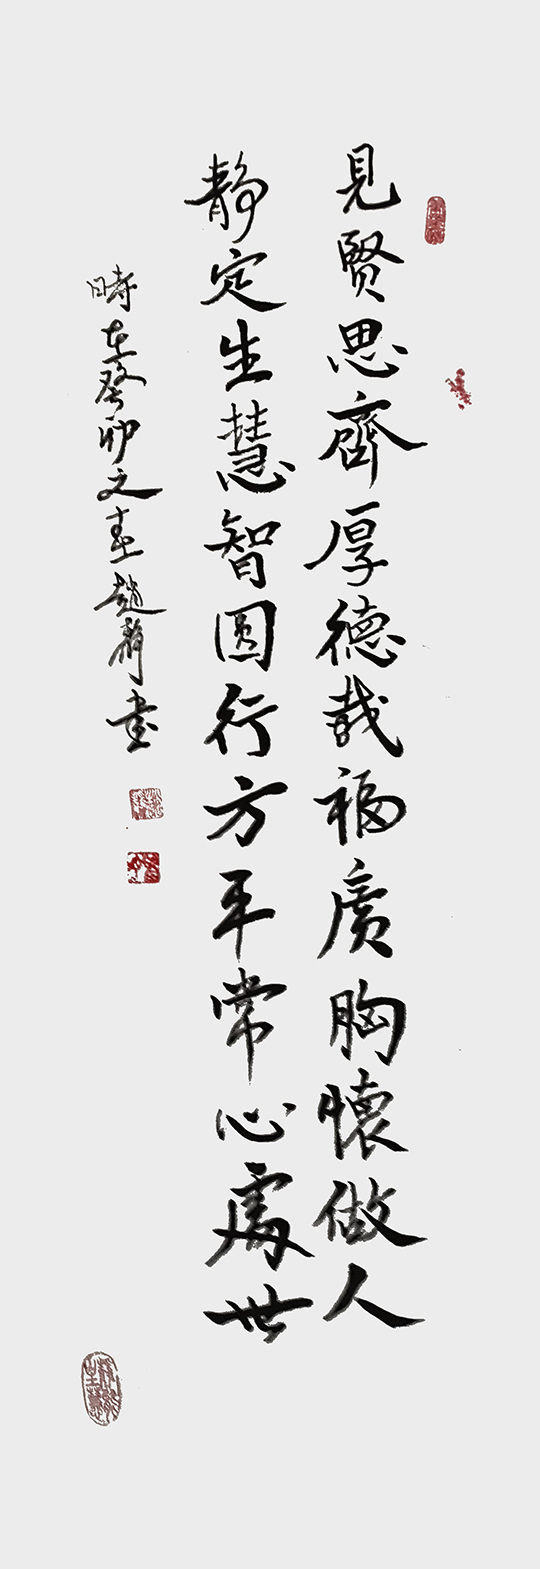 見賢思齊厚德載福廣胸懷做人
靜定生慧智圆行方平常心處世
時在癸卯之春趙靜書